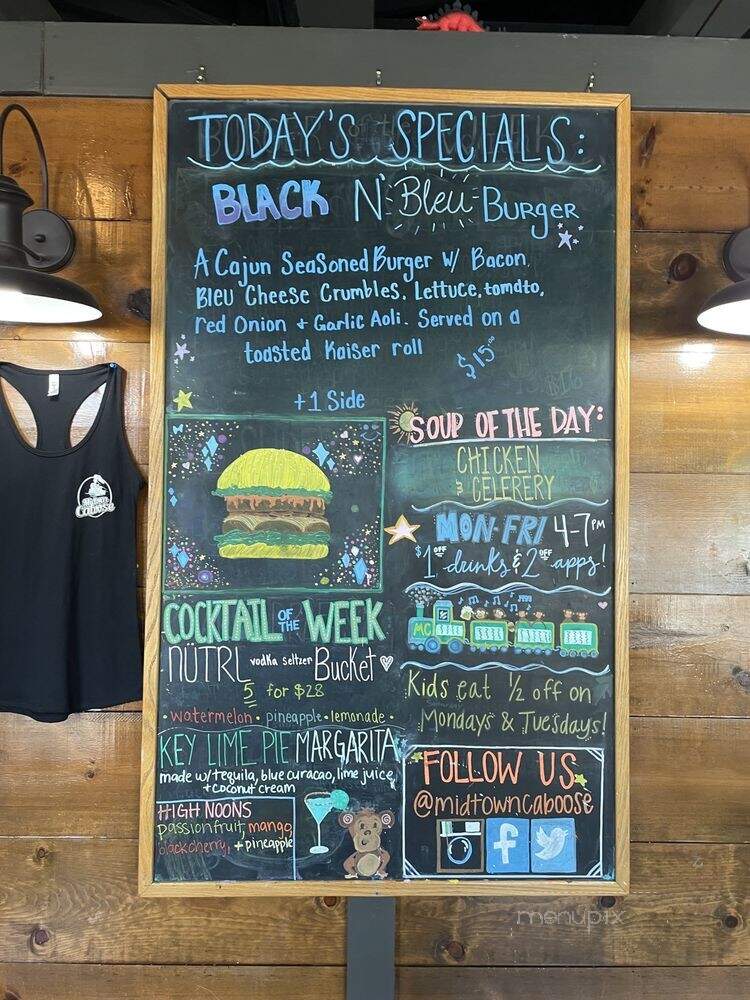 TODAY'S SPECIALS:
BLACK N Bleu BURGER
A Cajun Seasoned Burger w/ Bacon,
Bleu Cheese Crumbles, Lettuce, tomato,
red Onion + Garlic Aoli. Served on a
toasted Kaiser roll
$15.00
+1 Side
SOUP OF THE DAY:
CHICKEN
& CELERERY
MON-FRI 4-7PM
$1 OFF drinks & 2 OFF apps!
MC
COCKTAIL OF THE WEEK
NÜTRL vodka seltzer Bucket
5 for $28
• watermelon • pineapple • lemonade •
Kids eat 1/2 off on
Mondays & Tuesdays!
KEY LIME PIE MARGARITA
made w/tequila, blue curacao, lime juice,
+ coconut cream
HIGH NOONS
passionfruit, mango,
blackcherry, + pineapple
FOLLOW US
@midtowncaboose
f
Midtown
Caboose
menupix